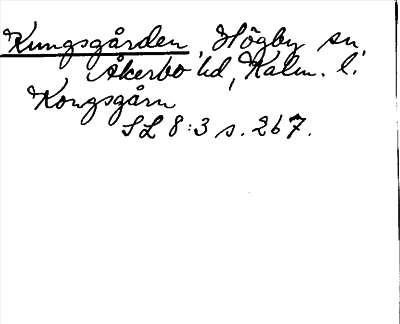 Kungsgården, Högby sn,
Åkerbo hd, Kalm. l.
Kongsgårn
SL 8:3 s. 267.